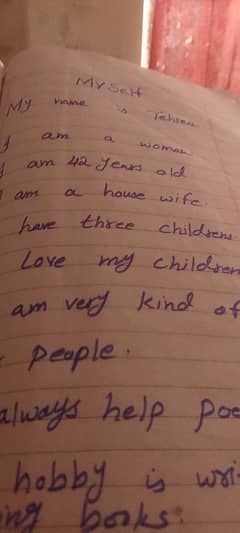 My Self
My name is Tehsen
I am a woman
I am 42 years old
I am a house wife
have three childrens
Love my children
am very kind of
people.
always help poe
hobby is wri-
ing books.